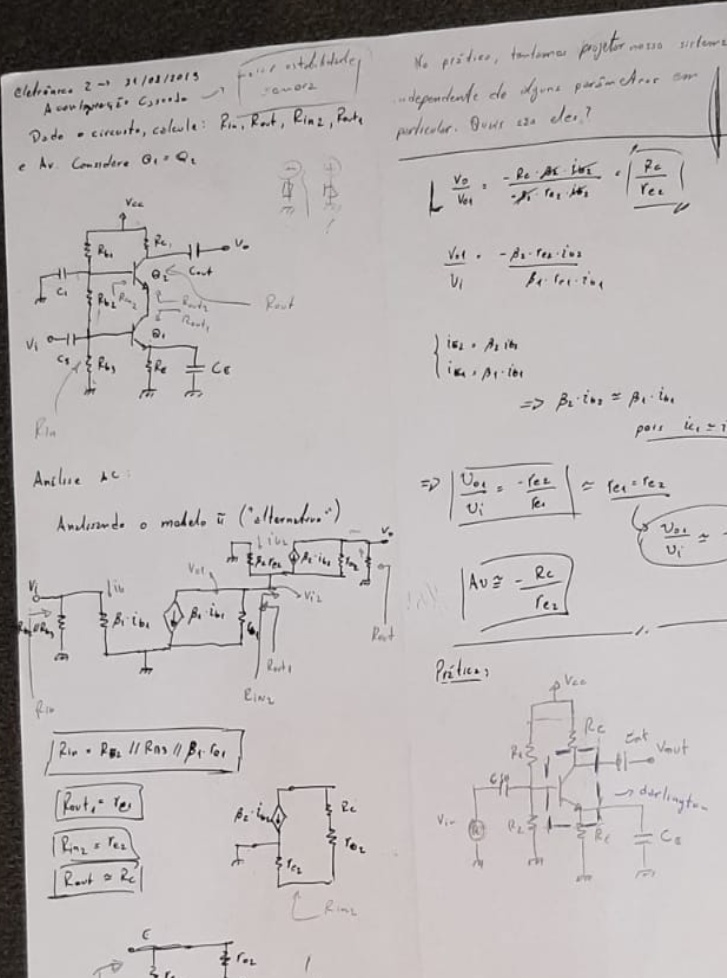 Eletrônica 2 → 21/08/2019
A configuração Cascode →
maior estabilidade
Dado o circuito, calcule: Rin, Rout, Rin2, Rout1
e Av. Considere Q1 = Q2
Vcc
Rb1
Rc
Vo
Cout
Q2
C1
Rb2
Rin2
Rout2
Rout1
Rout
Vi
Q1
CB
Rb3
RE
CE
Rin
Análise AC:
Analisando o modelo π ("alternativo")
ib2
β2 re2
β2·ib2
ro2
Vo
Vo1
Vi
ib
β1·ib1
β1·ib1
Vi2
Rout
Rout1
Rin2
Rin
Rin = RB2 // RB3 // β1·re1
Rout1 = ro1
Rin2 = re2
Rout ≅ Rc
β2·ib2
Rc
ro2
re2
Rin2
E
ro2
Na prática, tentamos projetar nosso sistema
independente de alguns parâmetros em
particular. Quais são eles?
Vo/Vo1 = -Rc·β2·ib2 / -β2·re2·ib2 = Rc/re2
Vo1/Vi = -β2·re2·ib2 / β1·re1·ib1
{ ic2 = β2 ib2
ic1 = β1·ib1
=> β2·ib2 ≅ β1·ib1
pois ic1 ≅ i
=> Vo1/Vi = -re2/re1 ≅ re1 = re2
Vo1/Vi ≅ -
Av ≅ -Rc/re2
Prática:
Vcc
Rc
R1
Cout
Vout
→ darlington
Vin
R2
RE
CE